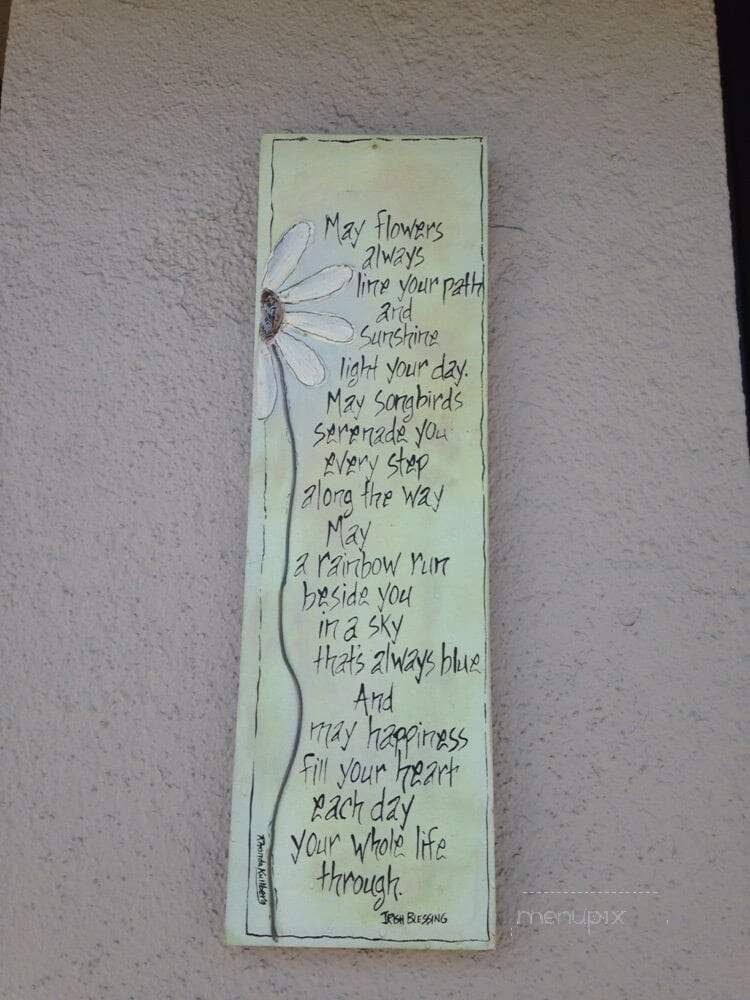 May flowers
always
line your path
and
sunshine
light your day.
May songbirds
serenade you
every step
along the way
May
a rainbow run
beside you
in a sky
that's always blue
And
may happiness
fill your heart
each day
your whole life
through.
IRISH BLESSING
menupix